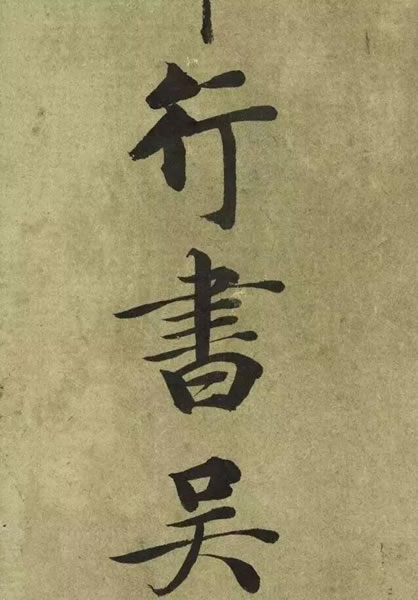 行書吴